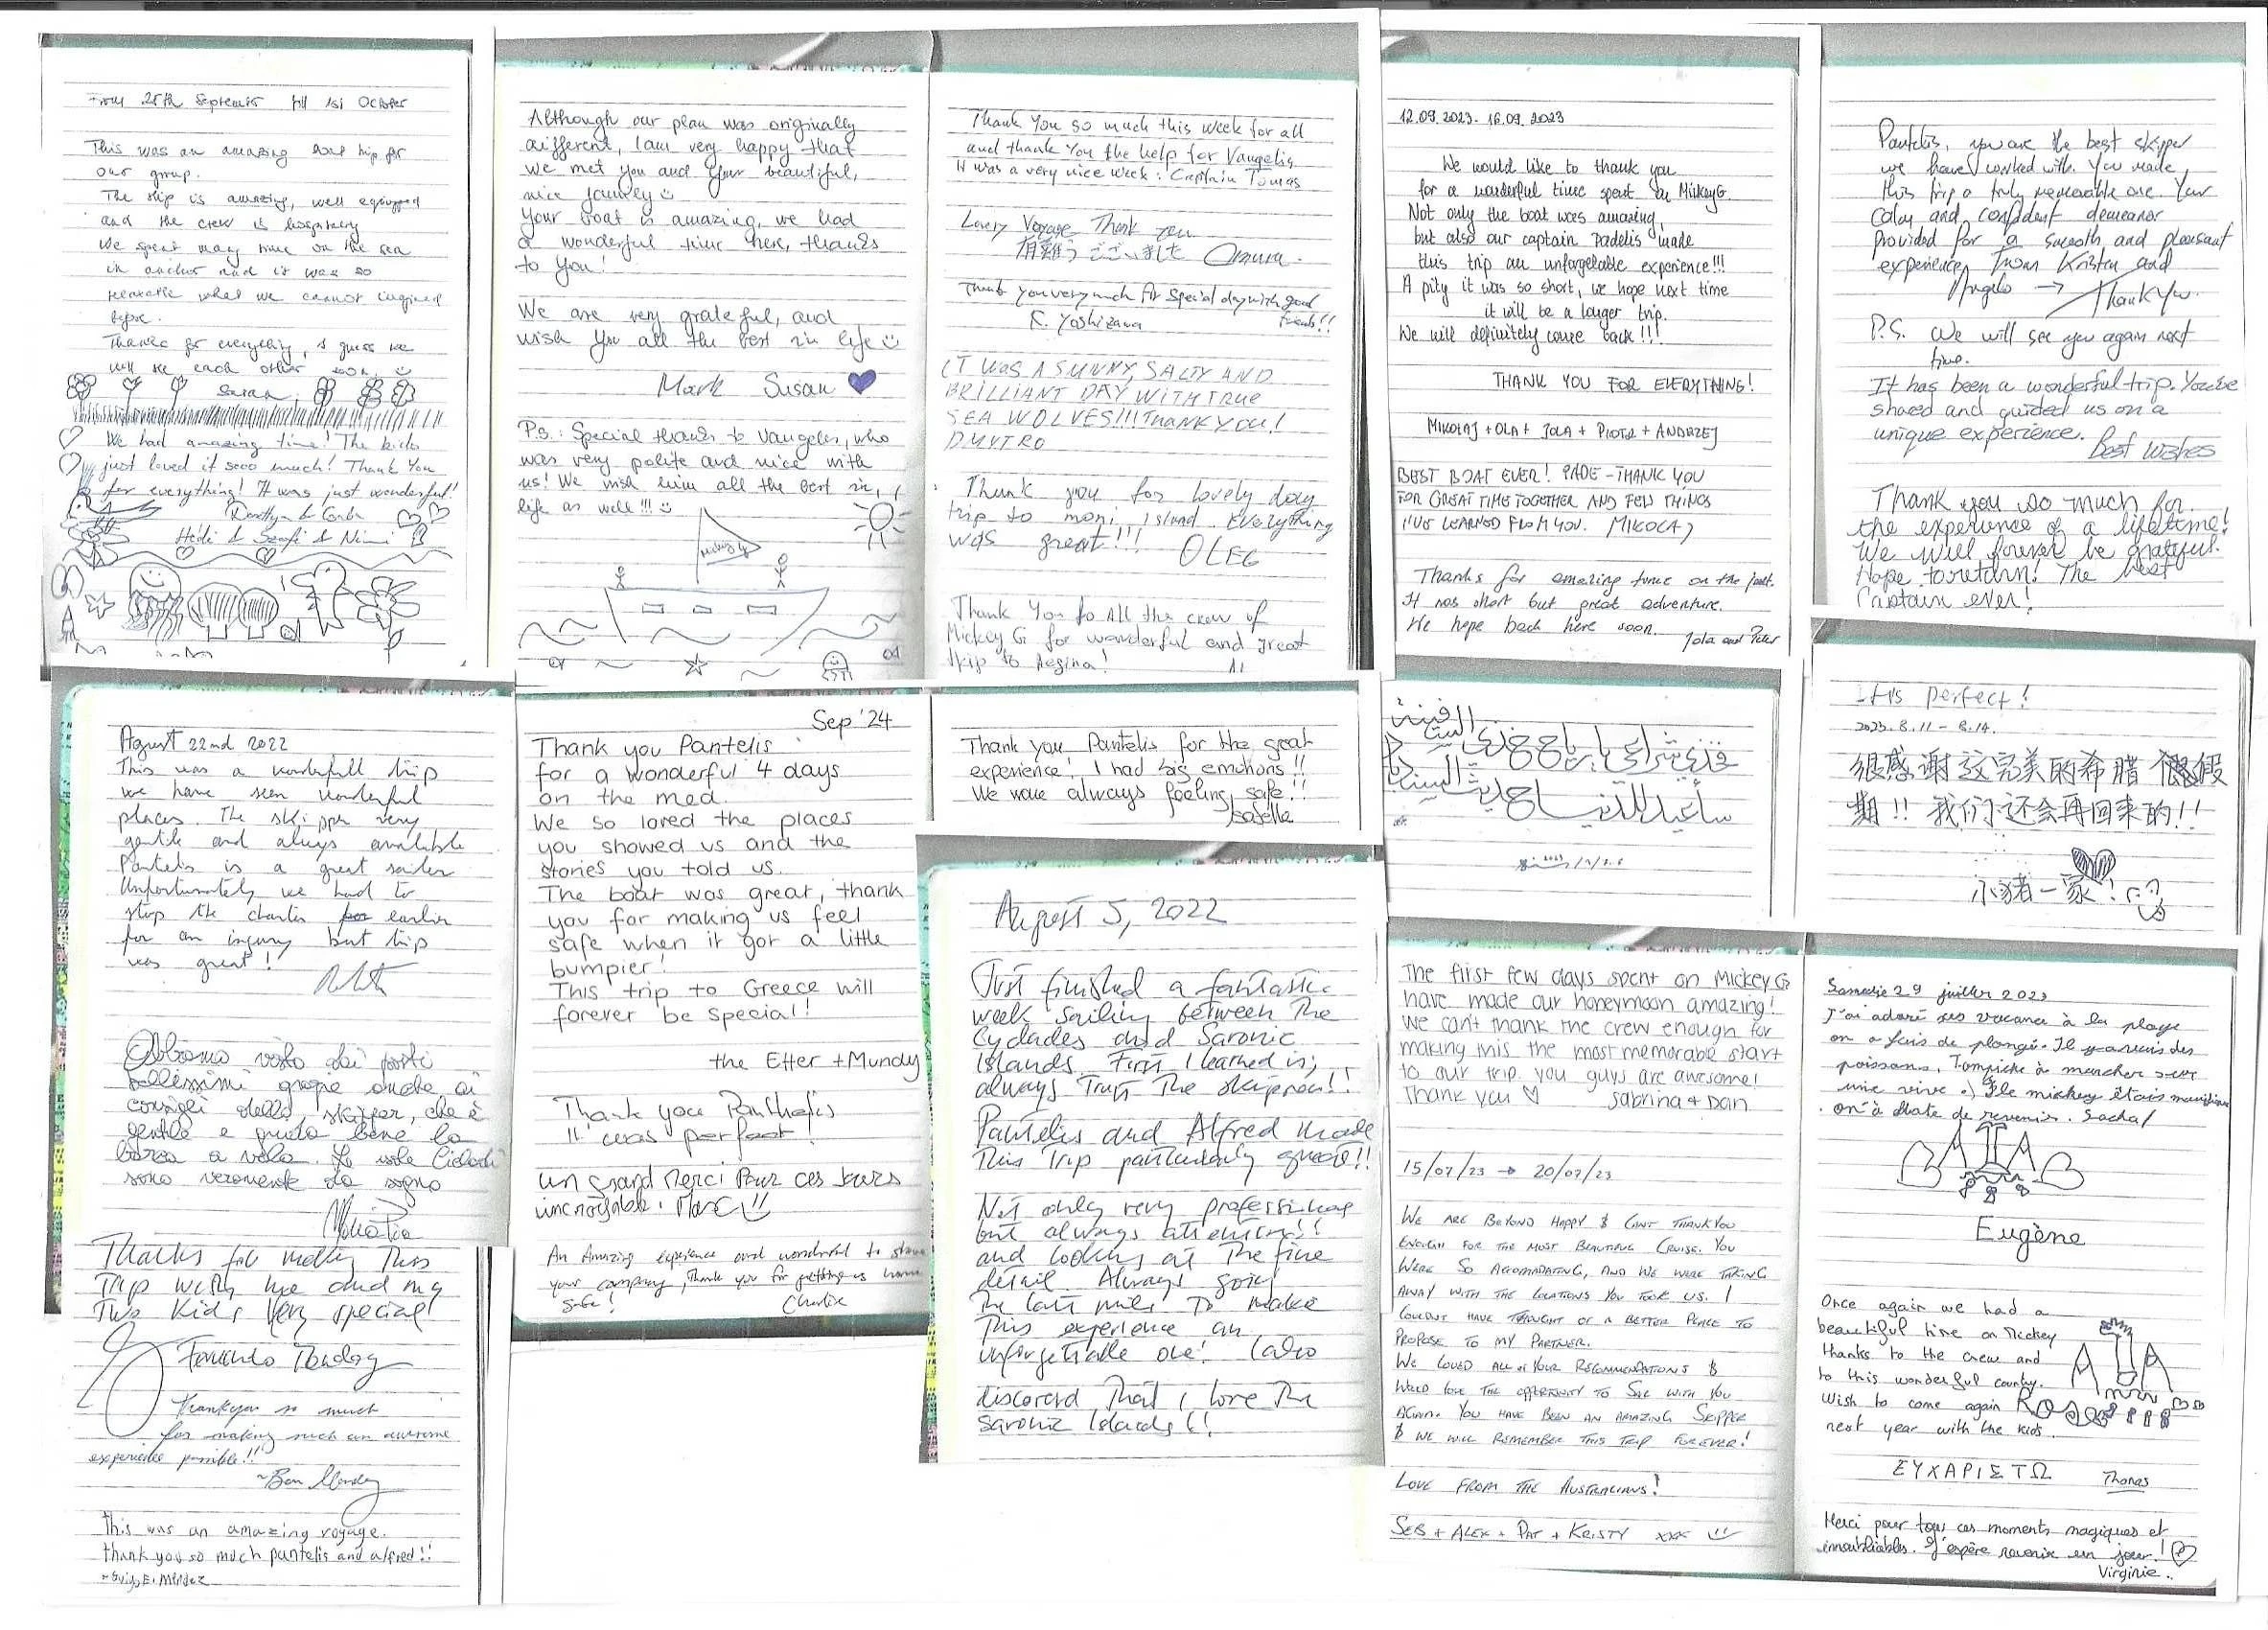 From 25th September till 1st October
This was an amazing boat trip for
our group.
The ship is amazing, well equipped
and the crew is hospitality
We spent many time on the sea
in anchor and it was so
what we cannot imagined
before.
Thanks for everything, I guess we
will see each other soon. ☺
Sarah
We had amazing time! The kids
just loved it sooo much! Thank You
for everything! It was just wonderful!
Hédi & Szofi & Nimi
Although our plan was originally
different, I am very happy that
we met you and your beautiful,
nice journey ☺
Your boat is amazing, we had
a wonderful time here, thanks
to you!
We are very grateful, and
wish you all the best in life ☺
Mark Susan
P.S.: Special thanks to Vangelis, who
was very polite and nice with
us! We wish him all the best in
life as well!!! ☺
Mickey G
Thank You so much this week for all
and thank You the help for Vangelis
It was a very nice week: Captain Tomas
Lovely Voyage Thank you
有難うございました Omura.
Thank you very much for special day with good
friends!!
K. Yoshizawa
IT WAS A SUNNY, SALTY AND
BRILLIANT DAY WITH TRUE
SEA WOLVES!!! THANK YOU!
DMYTRO
Thank you for lovely day
trip to moni island. Everything
was great!!! OLEG
Thank You to all the crew of
Mickey G for wonderful and great
trip to Aegina!
12.09.2023 - 16.09.2023
We would like to thank you
for a wonderful time spent on MickeyG.
Not only the boat was amazing,
but also our captain Padelis made
this trip an unforgetable experience!!!
A pity it was so short, we hope next time
it will be a longer trip.
We will definitely come back!!!
THANK YOU FOR EVERYTHING!
MIKOŁAJ + OLA + JOLA + PIOTR + ANDRZEJ
BEST BOAT EVER! PADE - THANK YOU
FOR GREAT TIME TOGETHER AND FEW THINGS
I'VE LEARNED FROM YOU. MIKOŁAJ
Thanks for amazing time on the jacht.
It was short but great adventure.
We hope back here soon.
Jola and Peter
Pantelis, you are the best skipper
we have worked with. You made
this trip a truly memorable one. Your
calm and confident demeanor
provided for a smooth and pleasant
experience, from Kristen and
Angelo → Thank You.
P.S. We will see you again next
time.
It has been a wonderful trip. You've
shared and guided us on a
unique experience.
Best Wishes
Thank you so much for
the experience of a lifetime!
We will forever be grateful.
Hope to return! The best
Captain ever!
August 22nd 2022
This was a wonderfull trip
we have seen wonderful
places. The skipper very
gentle and always available
Pantelis is a great sailor
Unfortunately we had to
stop the charter earlier
for an injury but trip
was great!
Abbiamo visto dei posti
bellissimi grazie anche ai
consigli dello skipper, che è
gentile e guida bene la
barca a vela. Le isole Cicladi
sono veramente da sogno
Maria Pia
Thanks for making this
Trip with me and my
Two kids very special!
Thank you so much
for making such an awesome
experience possible!!
~Ben
This was an amazing voyage.
thank you so much pantelis and alfred!!
Sep '24
Thank you Pantelis
for a wonderful 4 days
on the med.
We so loved the places
you showed us and the
stories you told us.
The boat was great, thank
you for making us feel
safe when it got a little
bumpier!
This trip to Greece will
forever be special!
the Etter + Mundy
Thank you Panthelis
it was perfect!
un grand Merci Pour ces jours
incroyable. Marc ☺
An Amazing experience and wonderful to share
your company, Thank you for getting us home
safe!
Charlie
Thank you Pantelis for the great
experience! I had big emotions!!
We were always feeling safe!!
Isabelle
August 5, 2022
Just finished a fantastic
week sailing between the
Cyclades and Saronic
Islands. First I learned is;
always Trust The skipper!!
Pantelis and Alfred made
This Trip particularly great!!
Not only very professional
but always attentive!!
and looking at The fine
detail. Always going
The last mile To make
This experience an
unforgettable one! I also
discovered That I love The
Saronic Islands!!
It's perfect!
2023.8.11 - 8.14.
很感谢这完美的希腊假
期!! 我们还会再回来的!!
小猪一家!
The first few days spent on Mickey G
have made our honeymoon amazing!
We can't thank the crew enough for
making this the most memorable start
to our trip. You guys are awesome!
Thank you ♡ Sabrina + Dan
15/07/23 → 20/07/23
WE ARE BEYOND HAPPY & CANT THANK YOU
ENOUGH FOR THE MOST BEAUTIFUL CRUISE. YOU
WERE SO ACCOMADATING, AND WE WERE TAKING
AWAY WITH THE LOCATIONS YOU TOOK US. I
COULDNT HAVE THOUGHT OF A BETTER PLACE TO
PROPOSE TO MY PARTNER.
WE LOVED ALL OF YOUR RECOMMENDATIONS &
WOULD LOVE THE OPPORTUNITY TO SAIL WITH YOU
AGAIN. YOU HAVE BEEN AN AMAZING SKIPPER
& WE WILL REMEMBER THIS TRIP FOREVER!
LOVE FROM THE AUSTRALIANS!
SEB + ALEX + PAT + KRISTY xxx ☺
Samedie 29 juillet 2023
J'ai adoré ses vacance à la plage
on a fais de plongé. Il y avais des
poissons. J'ai marcher sur
une vive :) Le mickey étais
on à hate de revenir. Sacha
Eugène
Once again we had a
beautiful time on Mickey
thanks to the crew and
to this wonderful country.
Wish to come again
next year with the kids.
ΕΥΧΑΡΙΣΤΩ Thomas
Merci pour tous ces moments magiques et
innoubliables. J'espère revenir un jour!
Virginie..